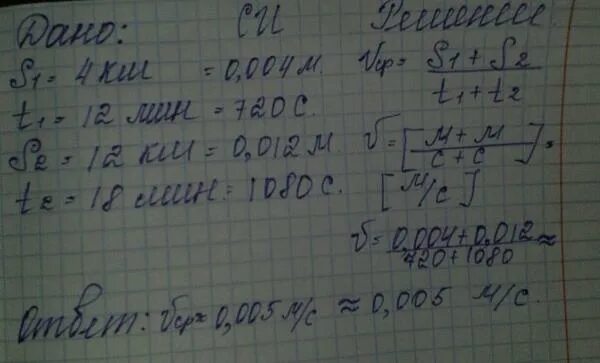 Дано: СИ Решение.
S1 = 4 км = 0,004 м. Vср = S1 + S2 / t1 + t2
t1 = 12 мин = 720 с.
S2 = 12 км = 0,012 м V = [м + м / с + с] =
t2 = 18 мин = 1080 с. [м/с]
V = 0,004 + 0,012 / 720 + 1080 ≈
Ответ: Vср ≈ 0,005 м/с ≈ 0,005 м/с.